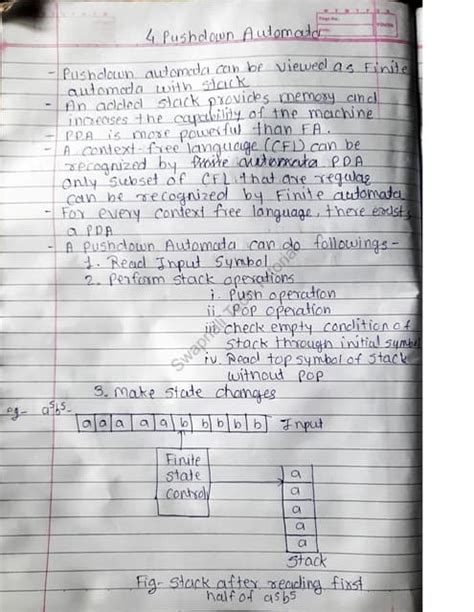 4. Pushdown Automata
- Pushdown automata can be viewed as Finite
automata with stack
- An added stack provides memory and
increases the capability of the machine
- PDA is more powerful than FA.
- A context-free language (CFL) can be
recognized by finite automata PDA
only subset of CFL that are regular
can be recognized by Finite automata
- For every context free language, there exists
a PDA
- A Pushdown Automata can do followings -
1. Read Input Symbol
2. Perform stack operations
i. Push operation
ii. POP operation
iii check empty condition of
stack through initial symbol
iv. Read top symbol of stack
without POP
3. make state changes
eg- a5b5-
a a a a a b b b b b Input
Finite
state
control
a
a
a
a
a
Stack
Fig- Stack after reading first
half of a5b5